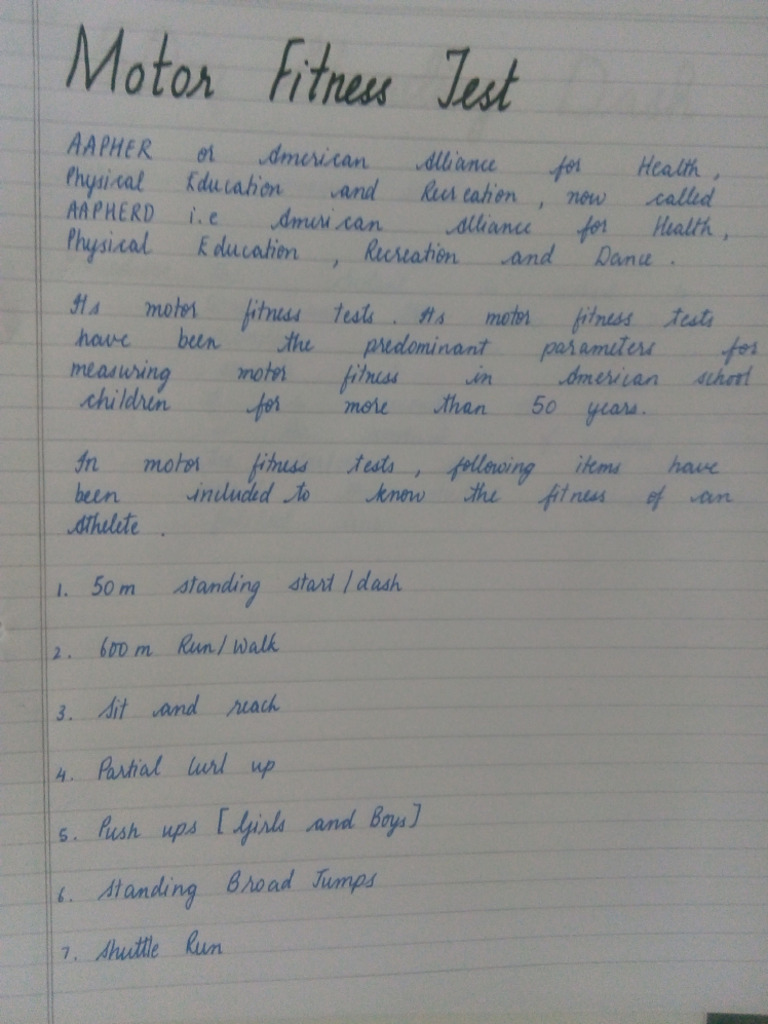 Motor Fitness Test
AAPHER or American Alliance for Health,
Physical Education and Recreation, now called
AAPHERD i.e American Alliance for Health,
Physical Education, Recreation and Dance.
Its motor fitness tests. Its motor fitness tests
have been the predominant parameters for
measuring motor fitness in American school
children for more than 50 years.
In motor fitness tests, following items have
been included to know the fitness of an
Athelete.
1. 50m standing start/dash
2. 600m Run/Walk
3. Sit and reach
4. Partial Curl up
5. Push ups [Girls and Boys]
6. Standing Broad Jumps
7. Shuttle Run